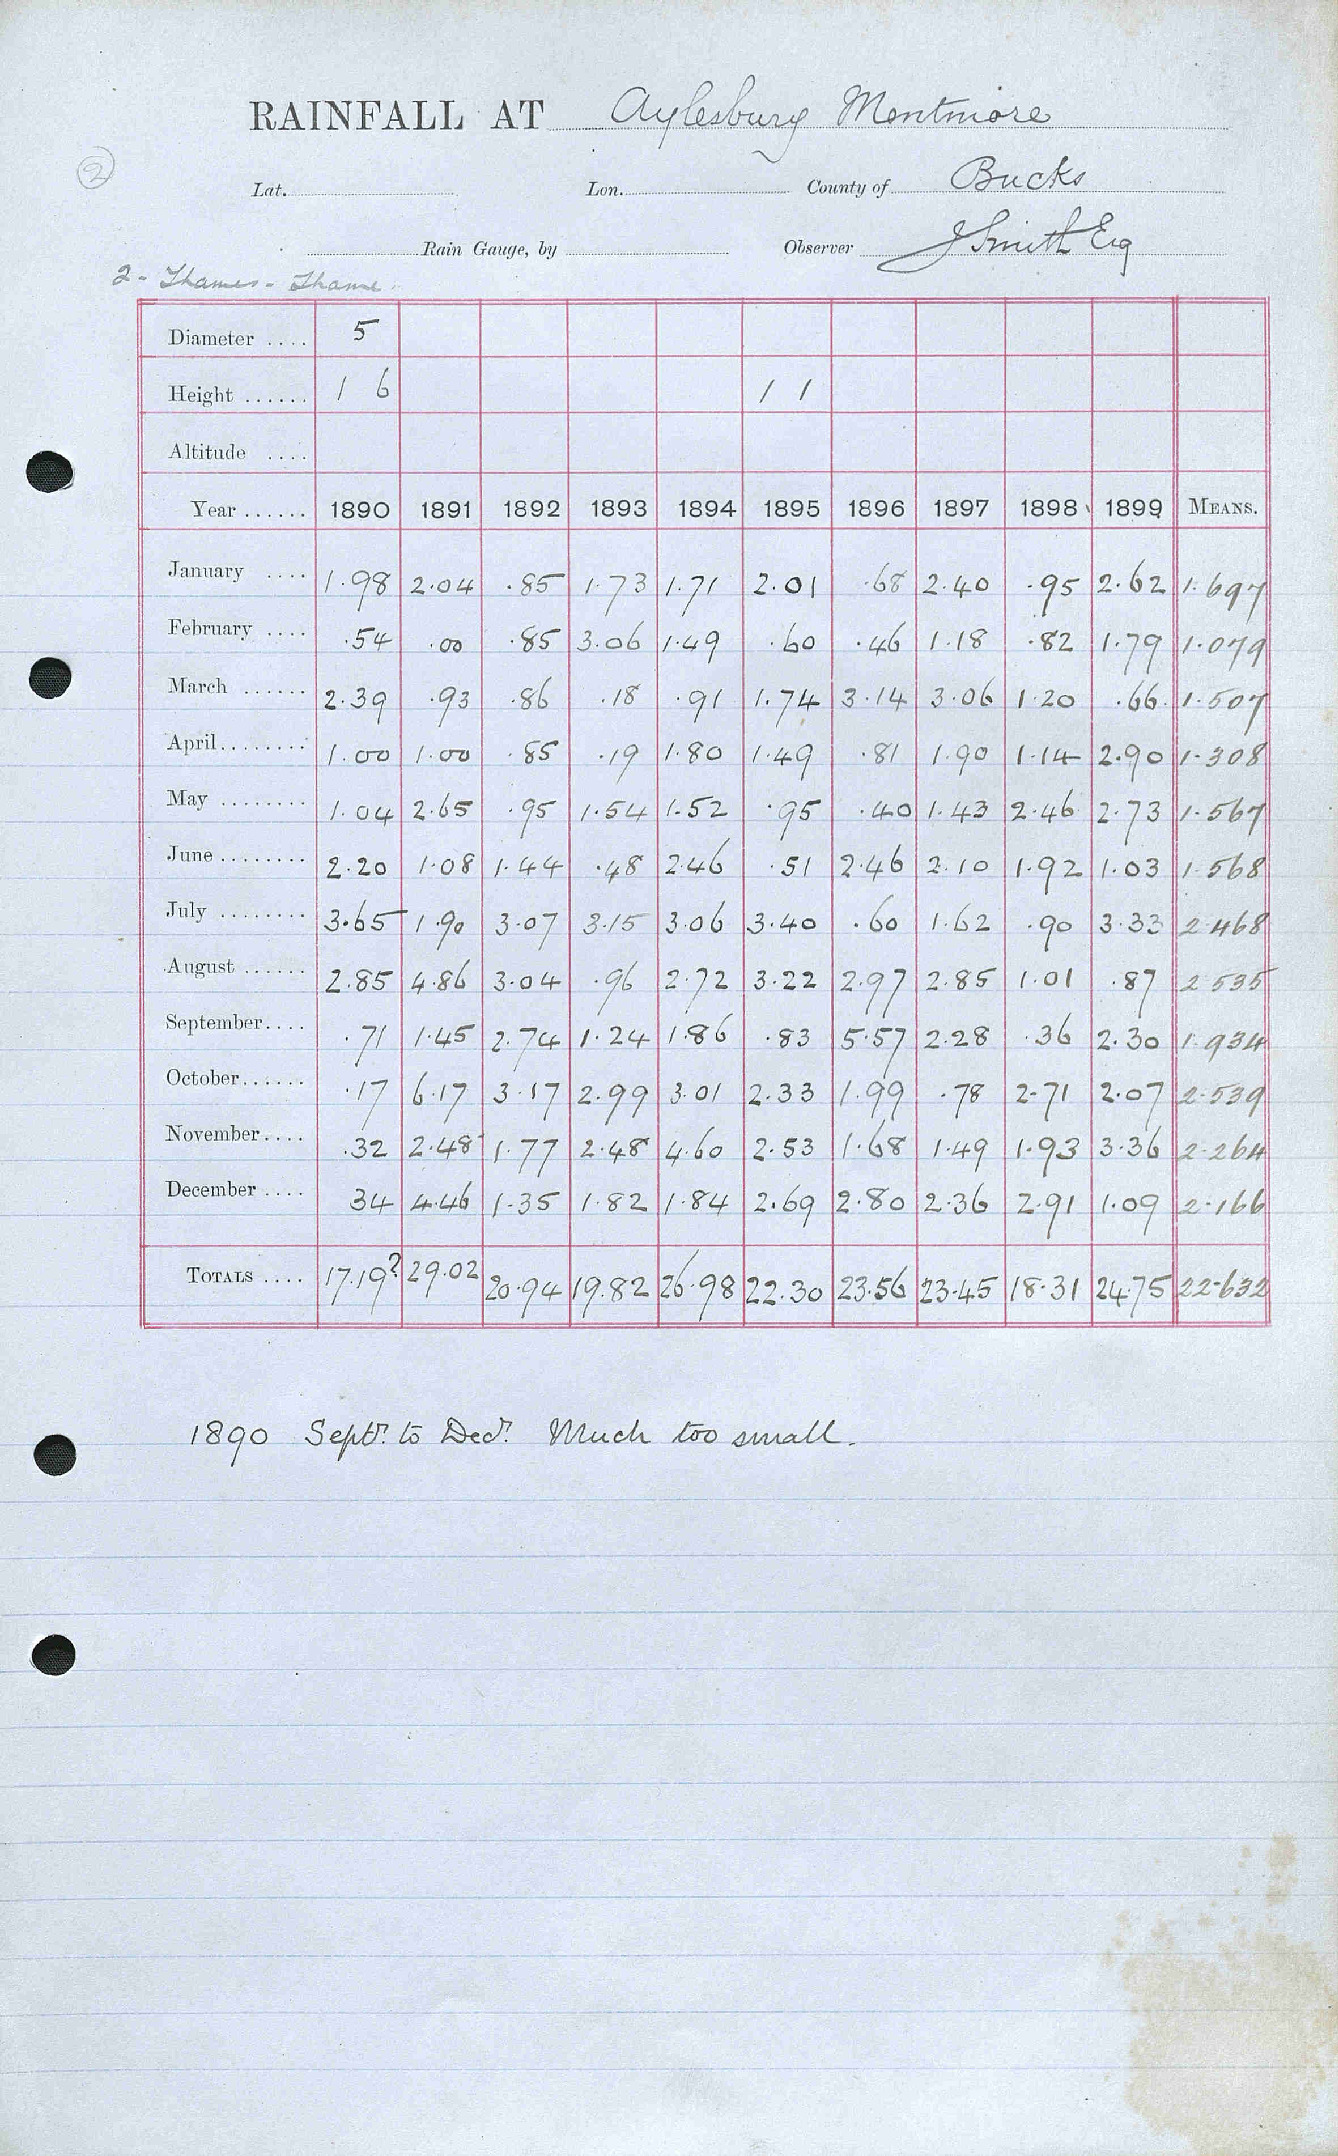 RAINFALL AT Aylesbury Mentmore
2
Lat. Lon. County of Bucks
Rain Gauge, by Observer J Smith Esq
2 - Thames - Thame
Diameter .... 5
Height ...... 1 6 1 1
Altitude ....
Year ...... 1890 1891 1892 1893 1894 1895 1896 1897 1898 1899 MEANS.
January .... 1.98 2.04 .85 1.73 1.71 2.01 .68 2.40 .95 2.62 1.697
February .... .54 .00 .85 3.06 1.49 .60 .46 1.18 .82 1.79 1.079
March ...... 2.39 .93 .86 .18 .91 1.74 3.14 3.06 1.20 .66 1.507
April........ 1.00 1.00 .85 .19 1.80 1.49 .81 1.90 1.14 2.90 1.308
May ........ 1.04 2.65 .95 1.54 1.52 .95 .40 1.43 2.46 2.73 1.567
June ........ 2.20 1.08 1.44 .48 2.46 .51 2.46 2.10 1.92 1.03 1.568
July ........ 3.65 1.90 3.07 3.15 3.06 3.40 .60 1.62 .90 3.33 2.468
August ...... 2.85 4.86 3.04 .96 2.72 3.22 2.97 2.85 1.01 .87 2.535
September.... .71 1.45 2.74 1.24 1.86 .83 5.57 2.28 .36 2.30 1.934
October...... .17 6.17 3.17 2.99 3.01 2.33 1.99 .78 2.71 2.07 2.539
November.... .32 2.48 1.77 2.48 4.60 2.53 1.68 1.49 1.93 3.36 2.264
December .... 34 4.46 1.35 1.82 1.84 2.69 2.80 2.36 2.91 1.09 2.166
TOTALS .... 17.19? 29.02 20.94 19.82 26.98 22.30 23.56 23.45 18.31 24.75 22.632
1890 Septr. to Decr. Much too small.